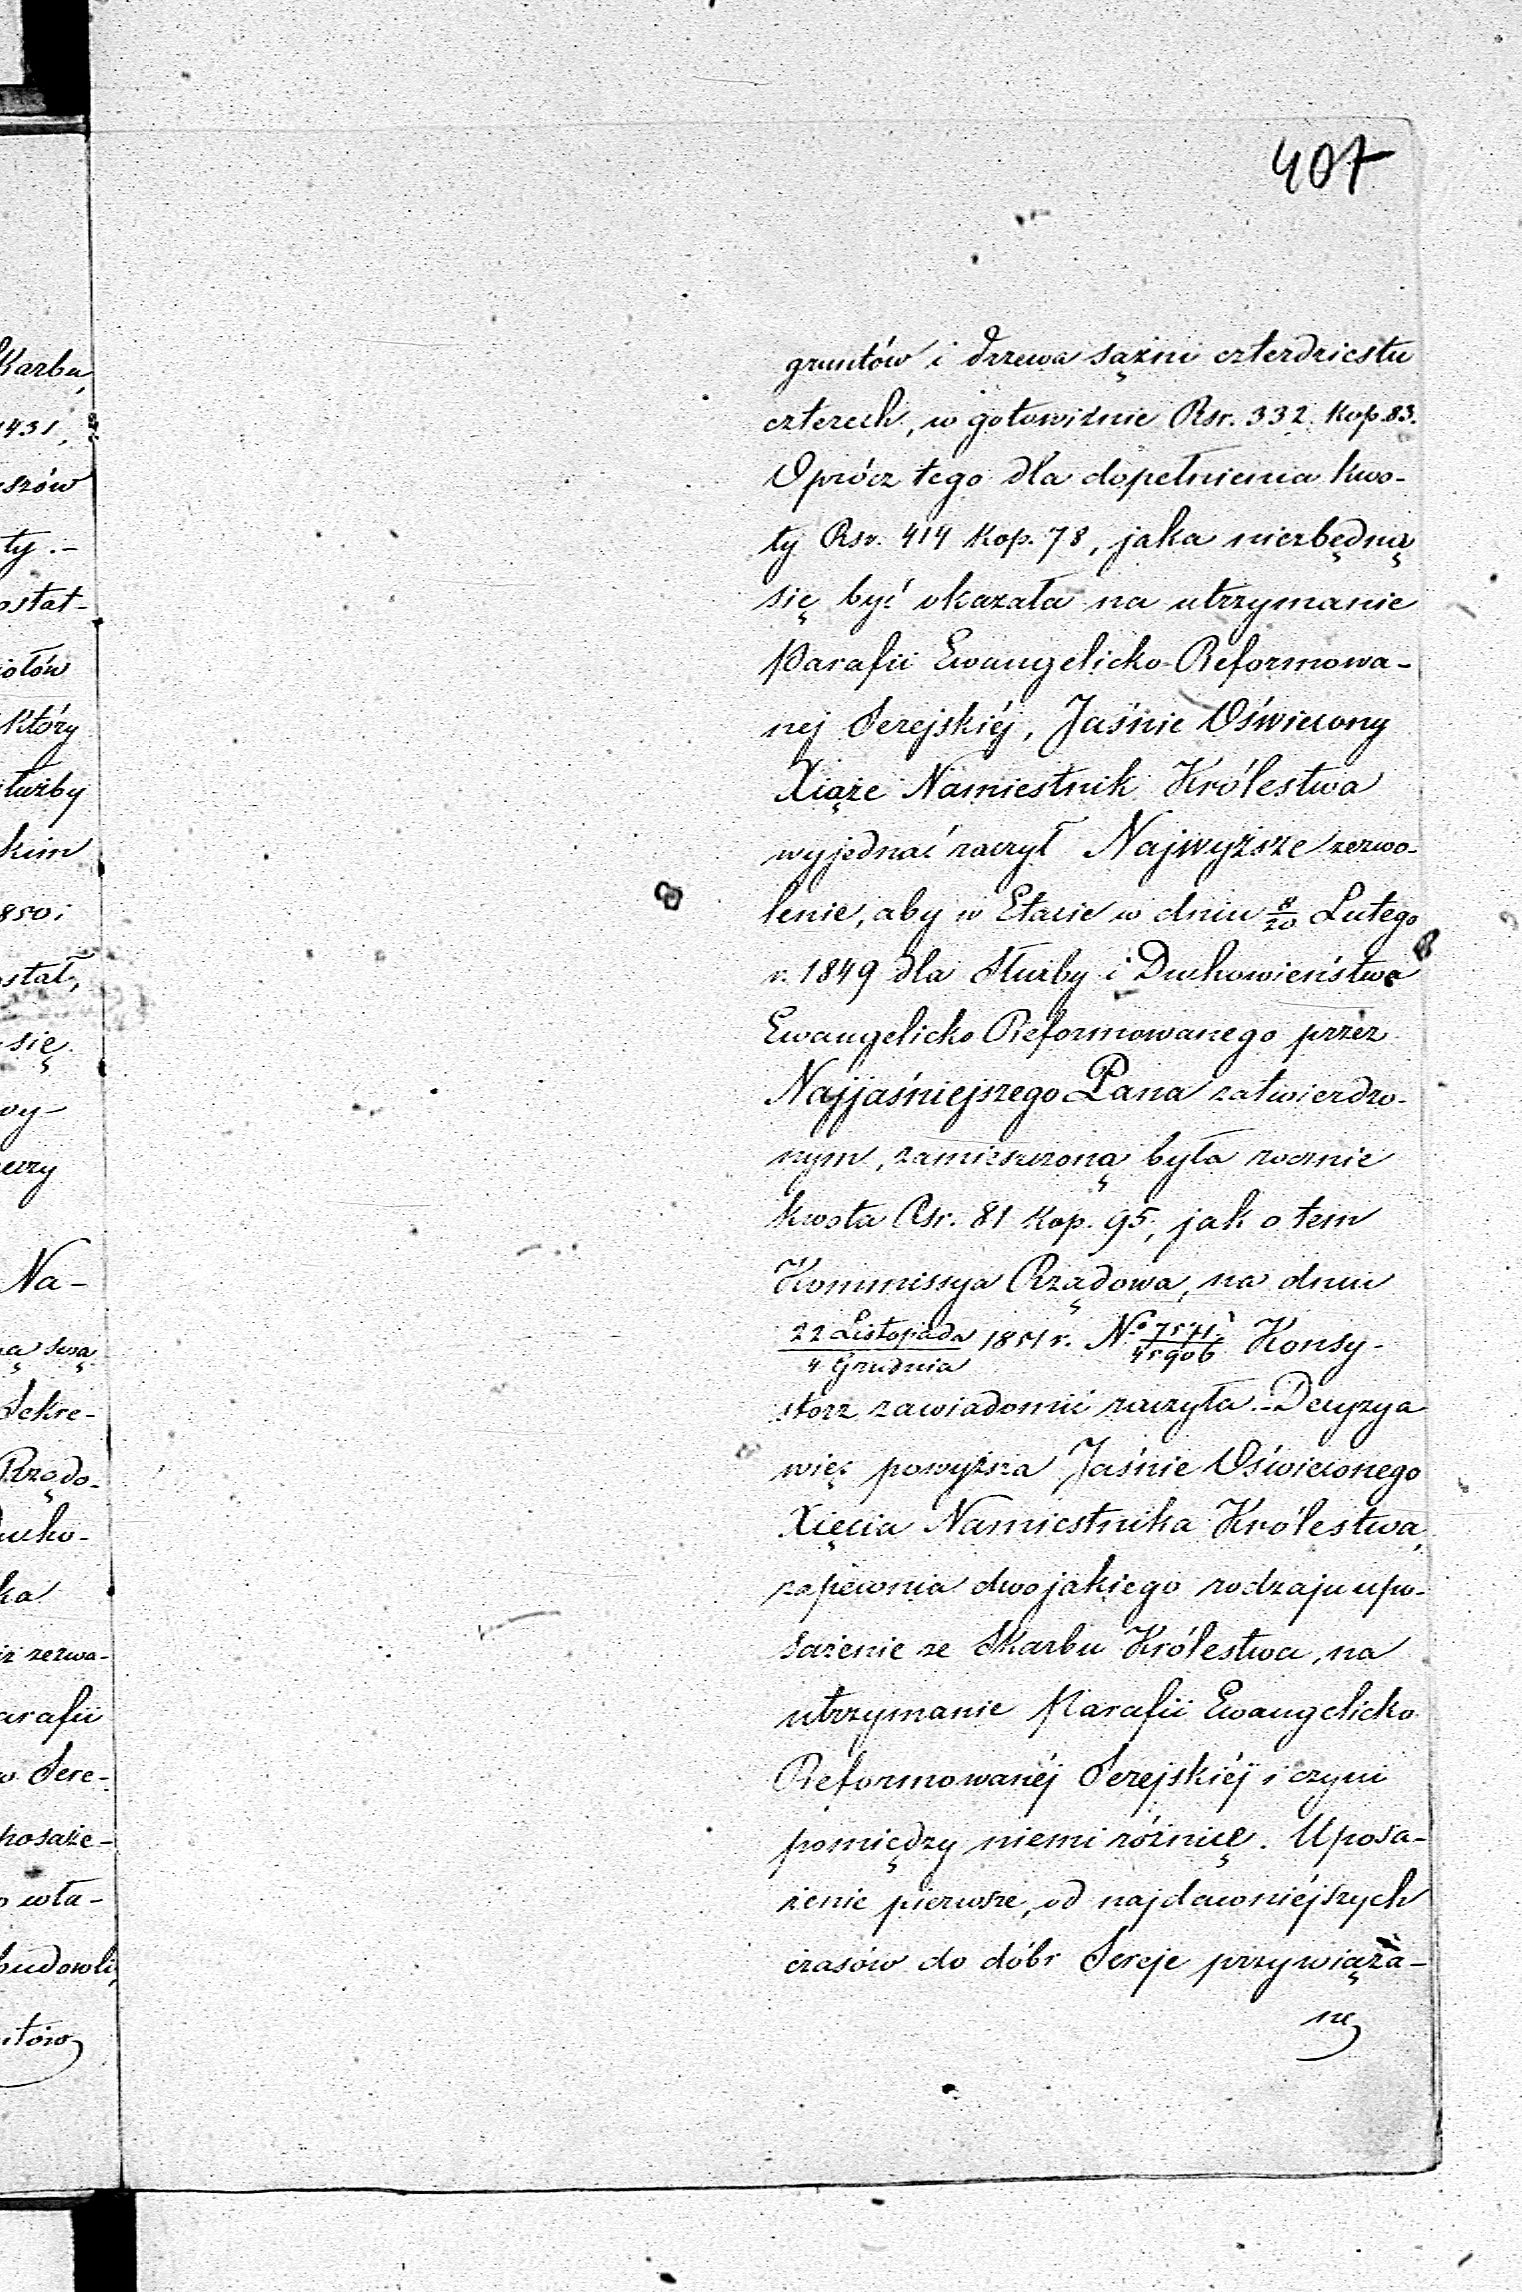 407
gruntów i drzewa sążni czterdziestu
czterech, w gotowiznie Rsr. 332. kop. 83.
Oprócz tego dla dopełnienia kwo-
ty Rsr. 414 kop. 78, jaka niezbędną
się być okazała na utrzymanie
Parafii Ewangelicko-Reformowa-
nej Serejskiéj, Jaśnie Oświecony
Xiąże Namiestnik Królestwa
wyjednać raczył Najwyższe zezwo-
lenie, aby w Etacie w dniu 8/20 Lutego
r. 1849 dla Służby i Duchowieństwa
Ewangelicko Reformowanego przez
Najjaśniejszego Pana zatwierdzo-
nym, zamieszczoną była rocznie
kwota Rsr. 81 kop. 95, jak o tem
Kommissya Rządowa, na dniu
22 Listopada/4 Grudnia 1851 r. No 7571/45906 Konsy-
storz zawiadomić raczyła. - Decyzya
więc powyższa Jaśnie Oświeconego
Xięcia Namiestnika Królestwa,
zapewnia dwojakiego rodzaju upo-
sażenie ze Skarbu Królestwa, na
utrzymanie Parafii Ewangelicko
Reformowanéj Serejskiéj i czyni
pomiędzy niemi różnicę. Uposa-
żenie pierwsze, od najdawniéjszych
czasów do dóbr Sereje przywiąza-
ne
karbu,
1431,
szów
ty. -
ostat-
iołów
który
łużby
kim
850 i
stał,
się
wy-
Na-
swą
Sekre-
Rządo-
ucho-
ka
zezwa-
arafii
w Sere-
posaże-
o wła-
budowli,
ntów